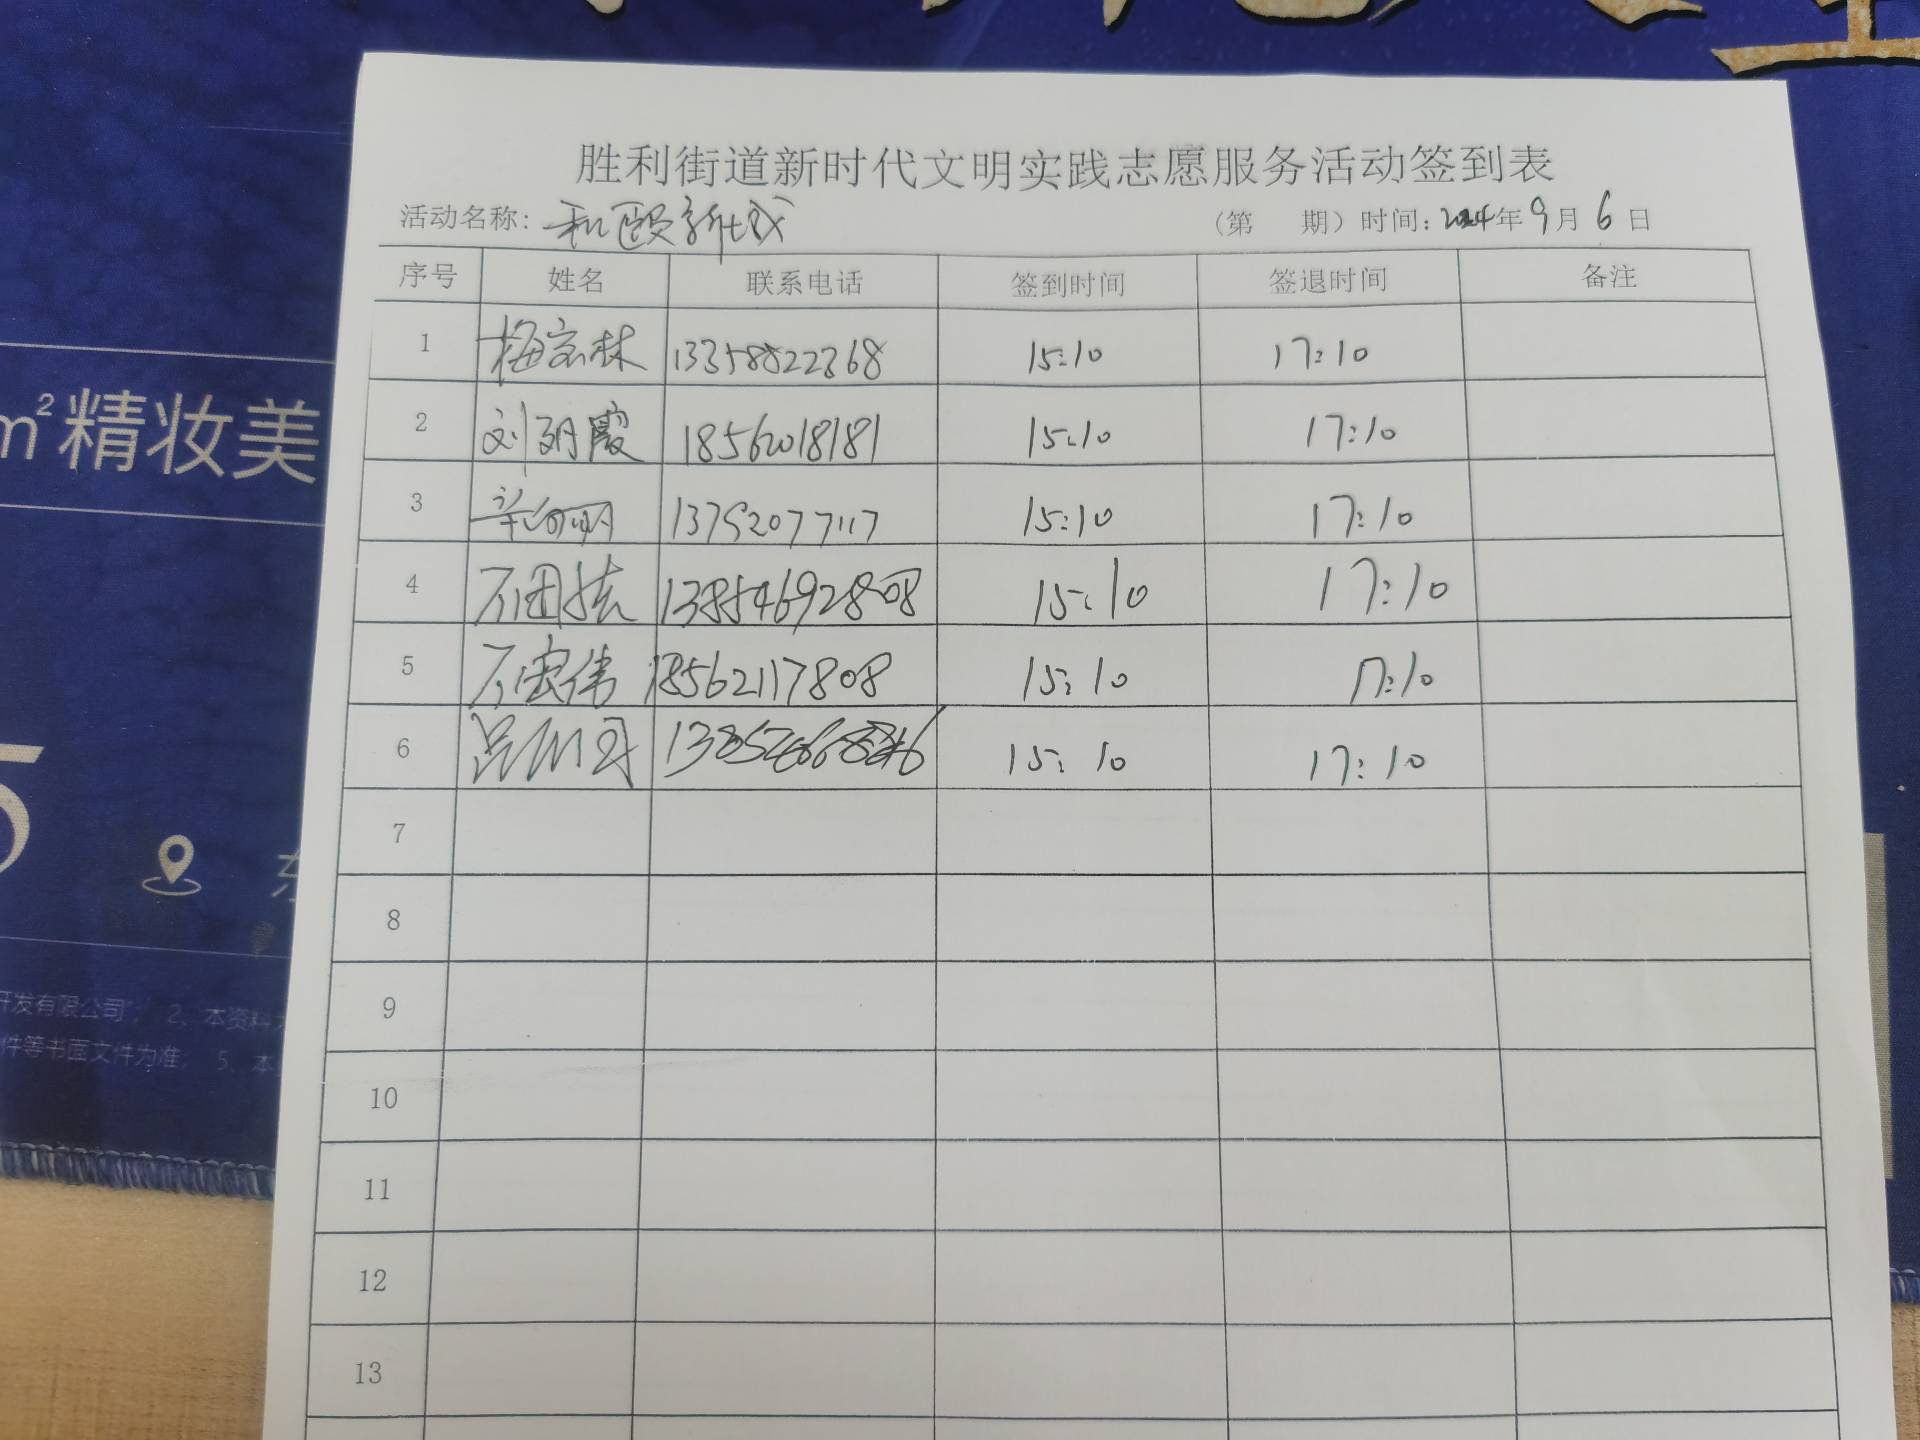 胜利街道新时代文明实践志愿服务活动签到表
活动名称: 和颐新城 (第 期) 时间: 2024年9月6日
序号 姓名 联系电话 签到时间 签退时间 备注
1 梅宏林 13358822368 15:10 17:10
2 刘玥霞 18562018181 15:10 17:10
3 13792077117 15:10 17:10
4 13854692808 15:10 17:10
5 石宏伟 18562117808 15:10 17:10
6 15:10 17:10
7
8
9
10
11
12
13
m²精妆美
5
开发有限公司"; 2、本资料
件等书面文件为准; 5、本